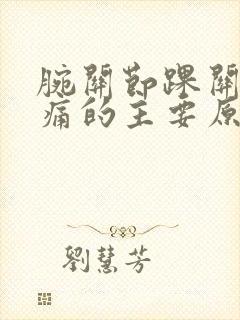 腕關節踝關
痛的主要原
劉慧芳